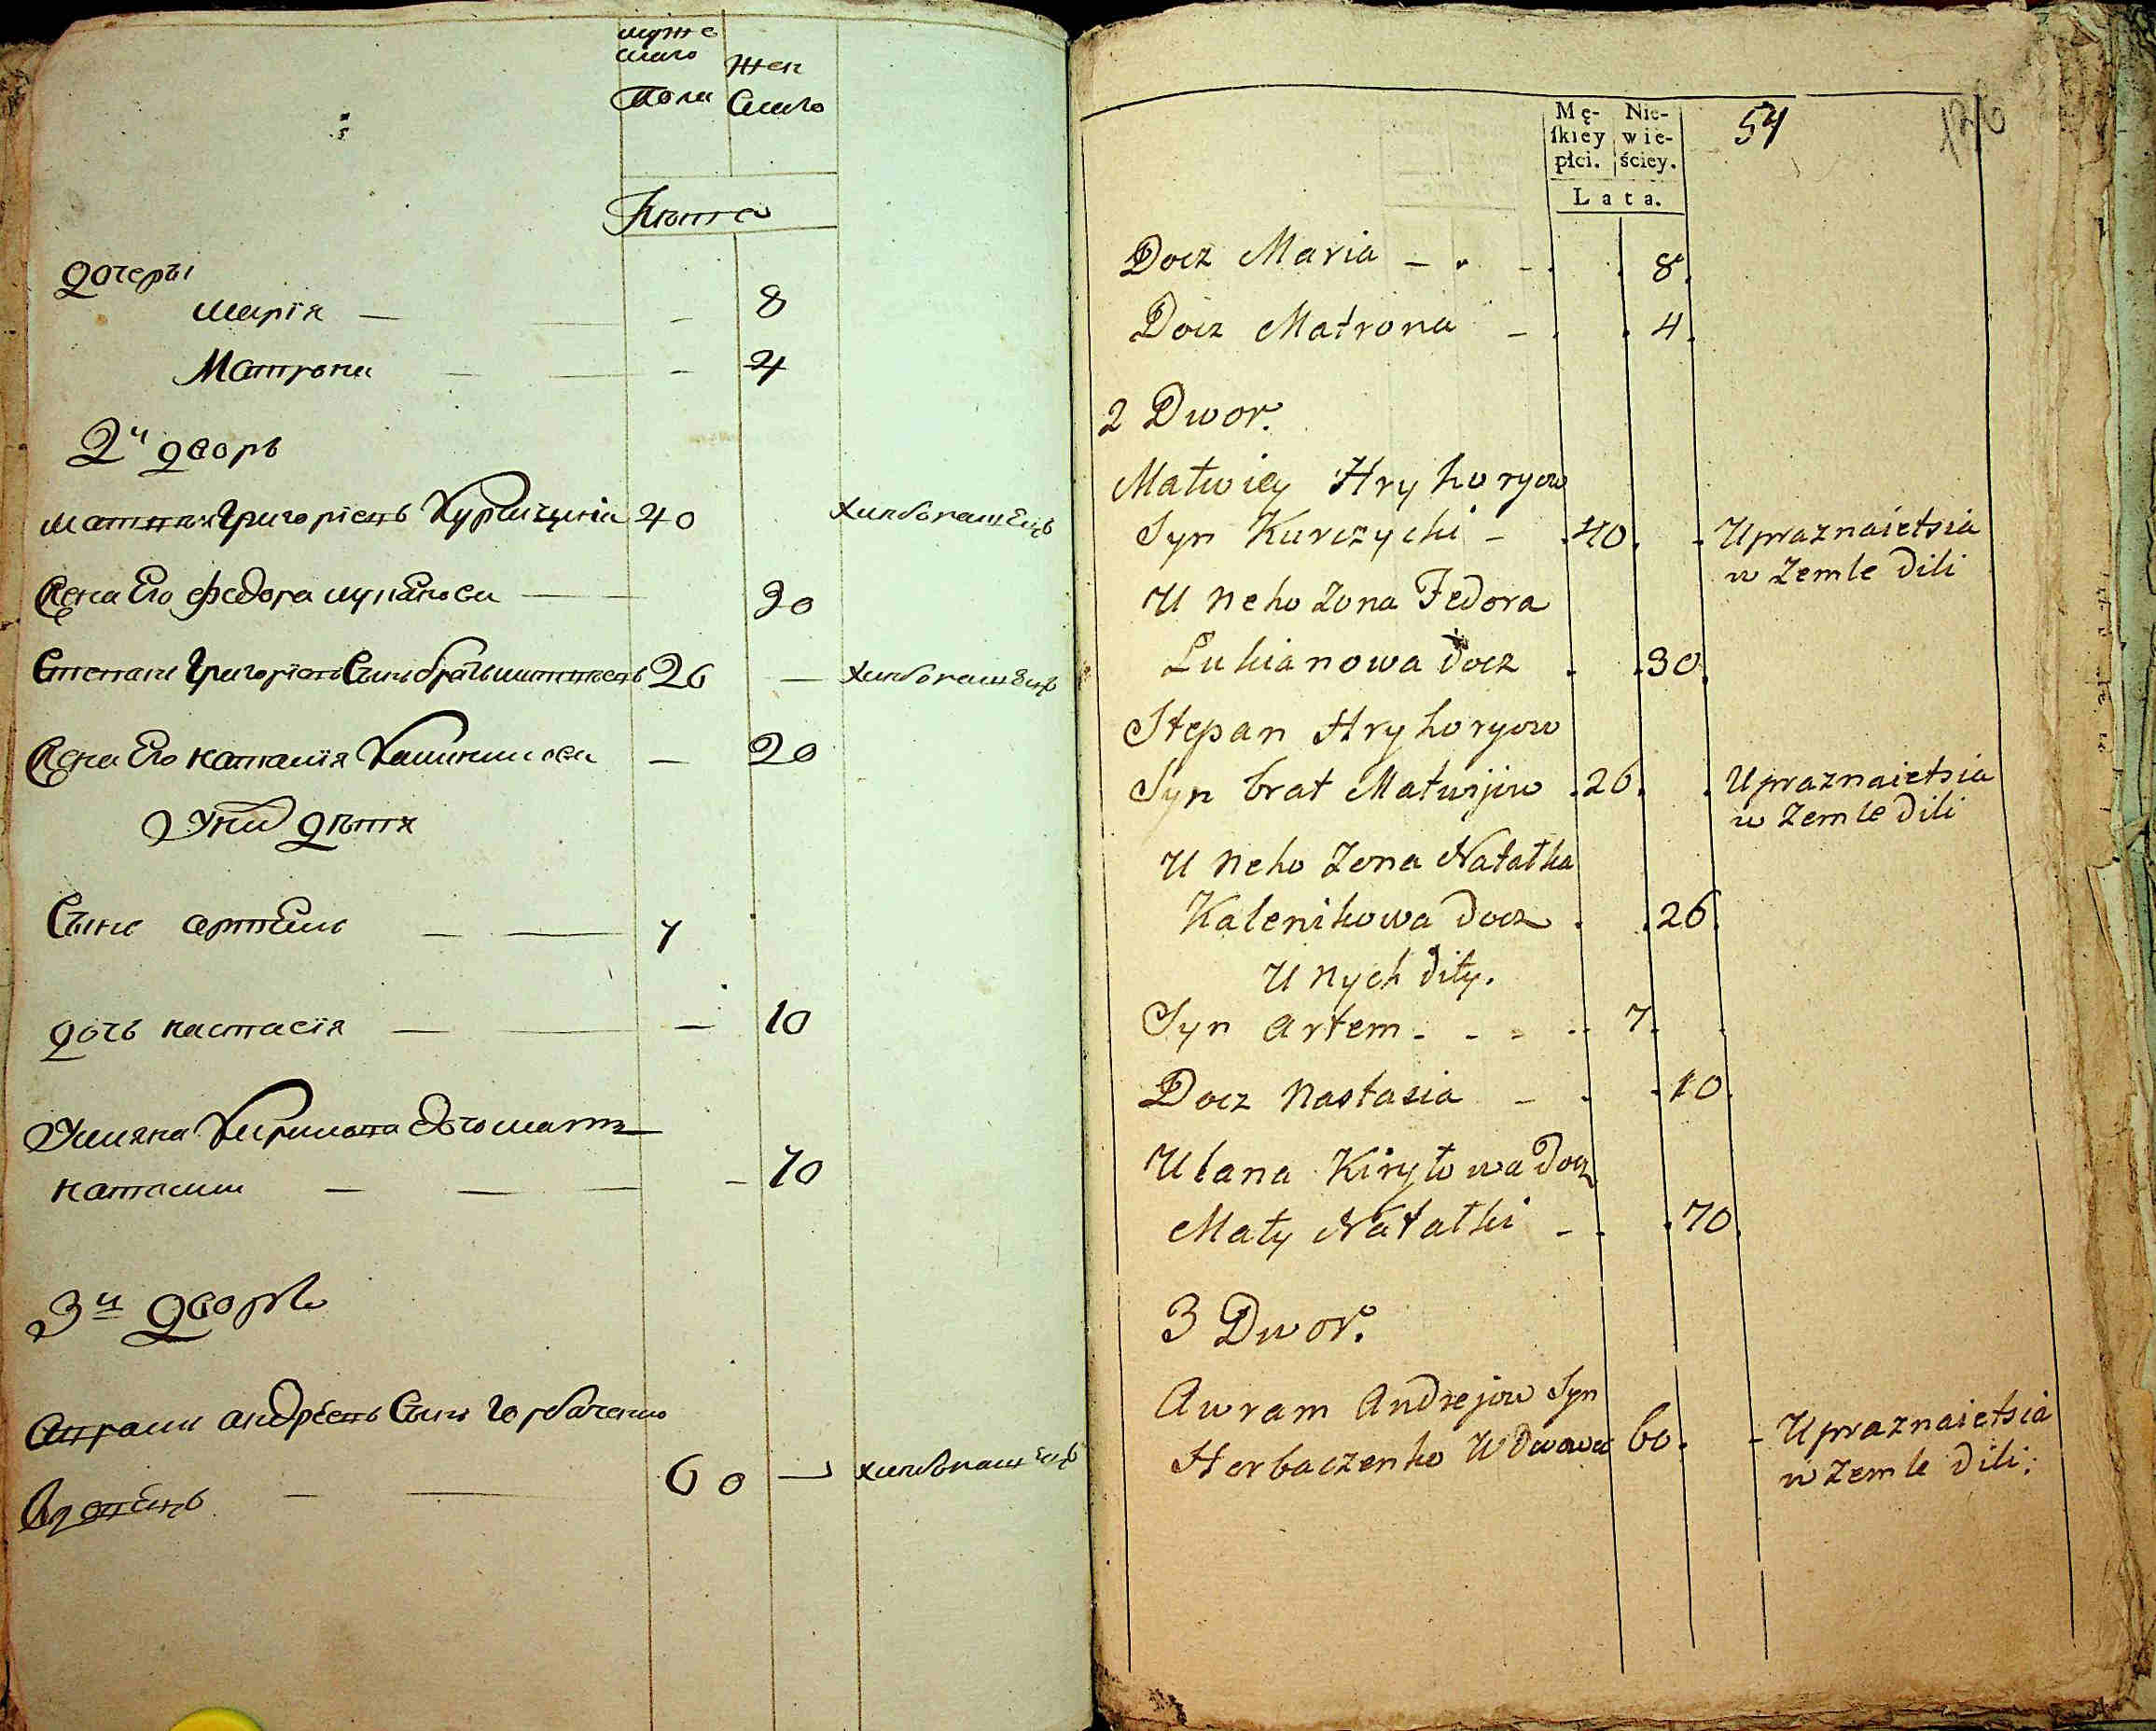 муже
скаго жен
пола скаго
Лѣта
дочеры
марія — — 8
Матрона — — 4
2й дворъ
матвей Григоріевъ Курчицкій 40 хлѣбопашецъ
Жена Его федора лукянова — 30
Степанъ Григоріевъ Сынъ братъ матвеевъ 26 — хлѣбопашецъ
Жена Его наталія Калиникова — 20
У них дѣтя
Сынъ артемъ — — 7
дочь настасія — — 10
Улияна Кирилова дочь мать
наталии — — — 70
3й дворъ
аврамъ андрѣевъ Сынъ Горбаченко
вдовецъ — — 60 — хлѣбопашецъ
Mę- Nie-
skiey wie-
płci. ściey.
Lata.
54
Docz Maria — 8.
Docz Matrona — 4.
2 Dwor.
Matwiey Hryhoryow
Syn Kurczycki — 40. Upraznaietsia
w Zemle dili
U neho Zona Fedora
Lukianowa docz 30.
Stepan Hryhoryow
Syn brat Matwijiw 26. Upraznaietsia
w Zemle dili
U neho Zona Natałka
Kalenikowa docz 26.
U nych dity.
Syn Artem 7.
Docz Nastasia — 10.
Ulana Kiryłowa docz
Maty Natałki — 70.
3 Dwor.
Awram Andrejow Syn
Horbaczenko Wdowec 60. Upraznaietsia
w Zemle dili;